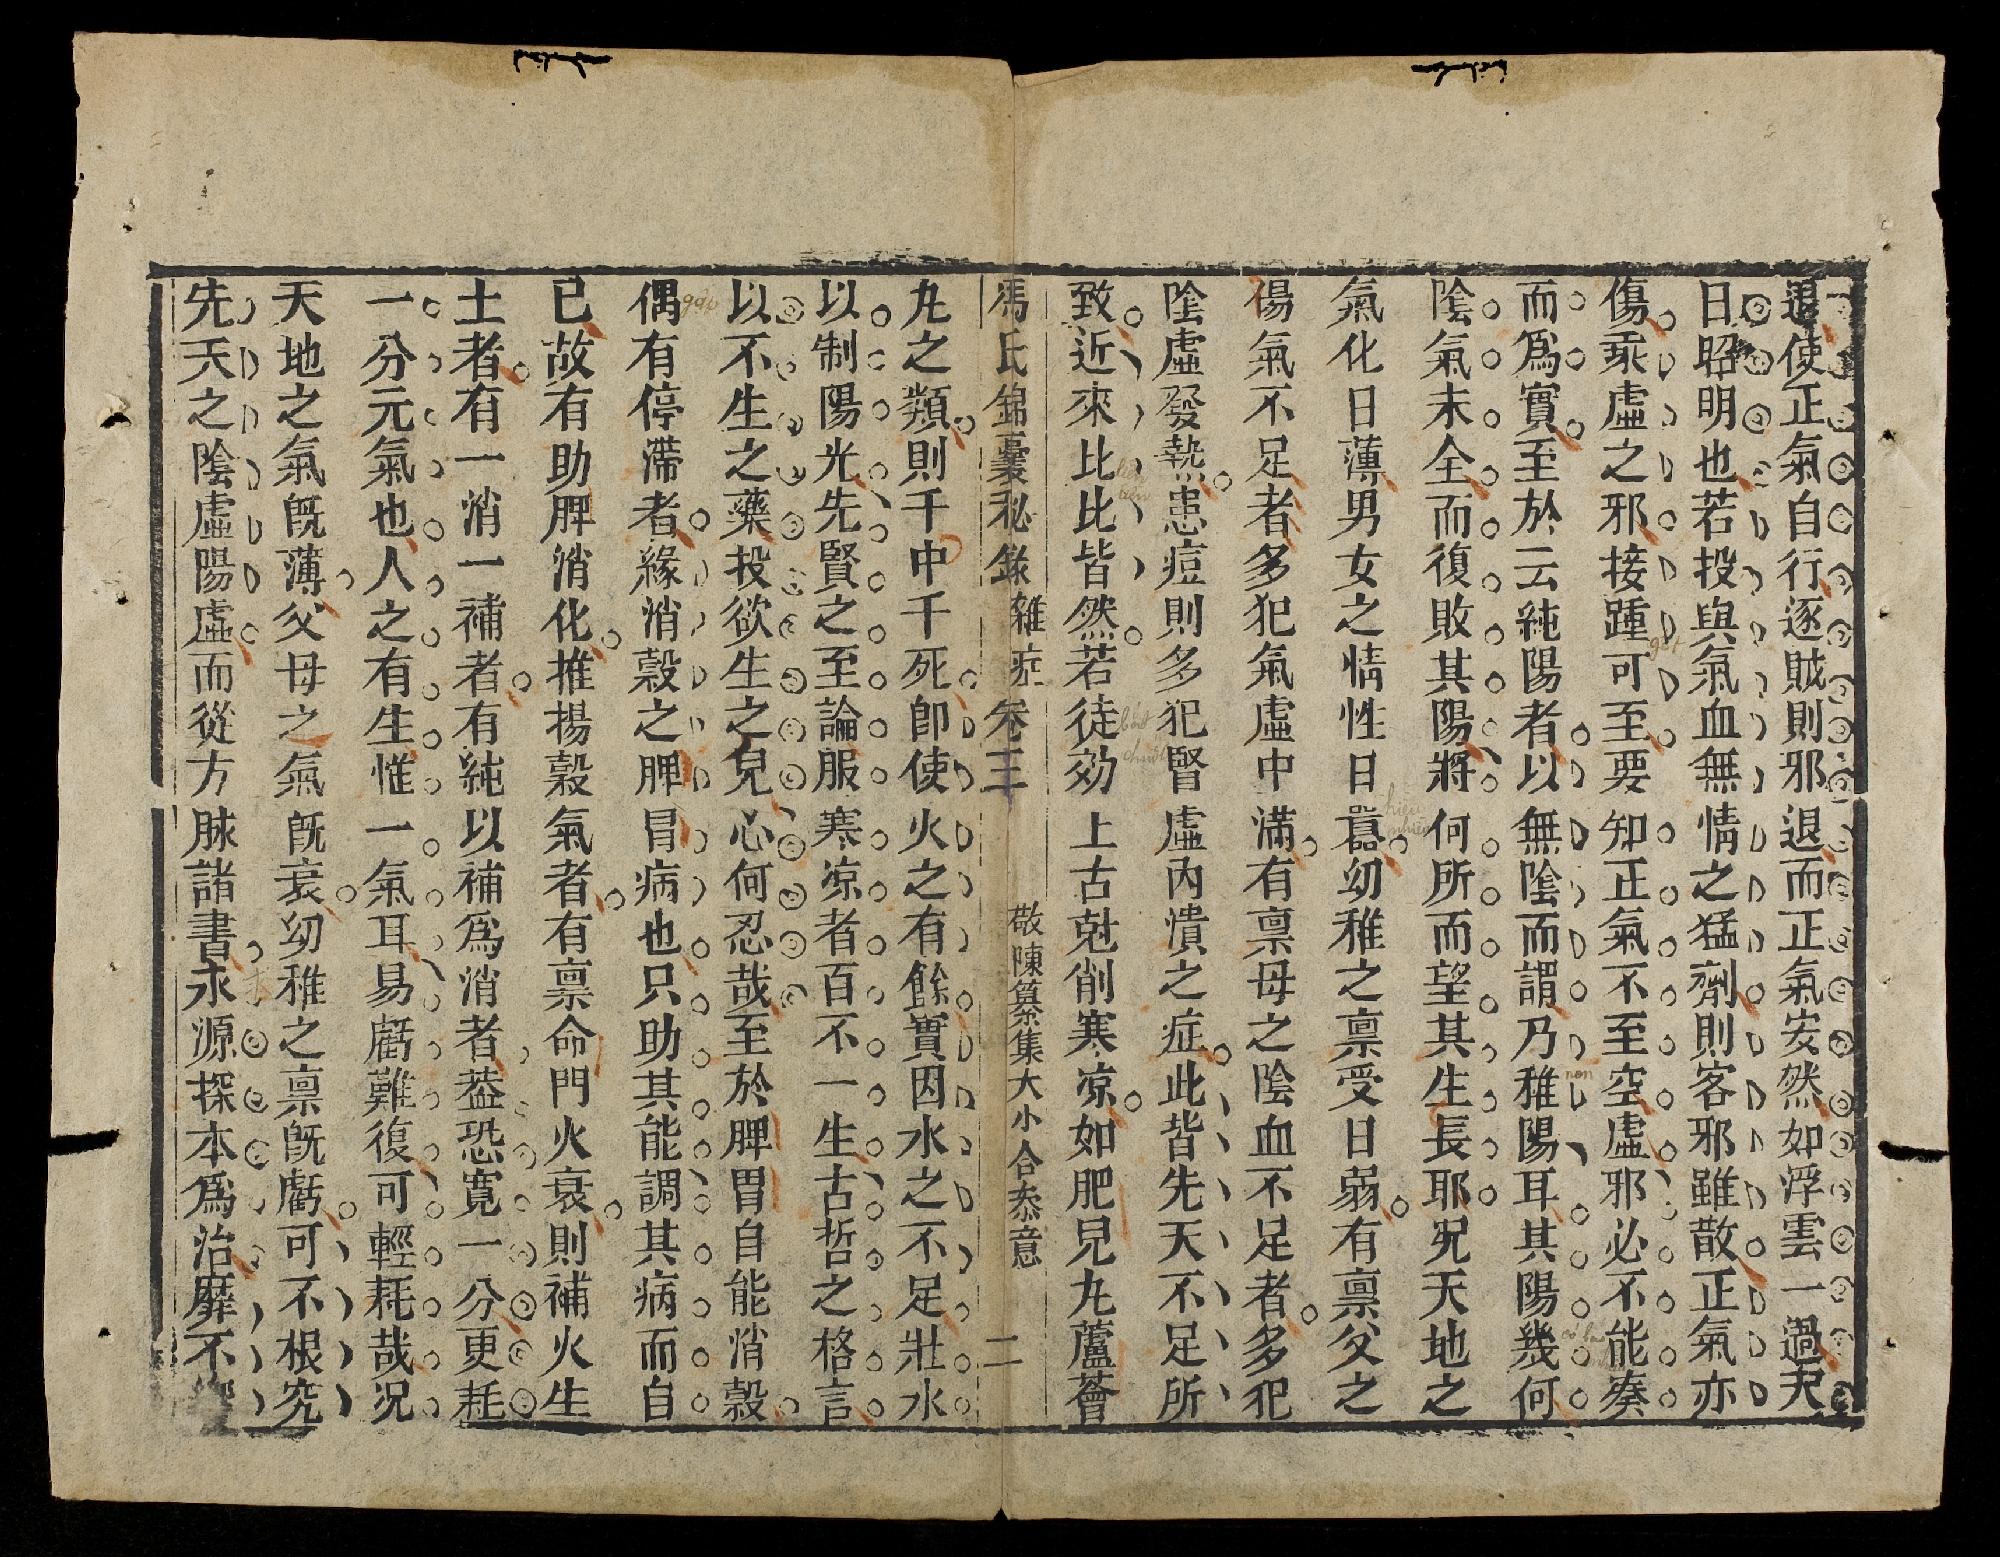 退使正氣自行逐賊則邪退而正氣安然如浮雲一過天
日昭明也若投與氣血無情之猛劑則客邪雖散正氣亦
傷乘虛之邪接踵可至要知正氣不至空虛邪必不能湊
而爲實至於云純陽者以無陰而謂乃稚陽耳其陽幾何
陰氣未全而復敗其陽將何所而望其生長耶况天地之
氣化日薄男女之情性日囂幼稚之禀受日弱有禀父之
陽氣不足者多犯氣虛中滿有禀母之陰血不足者多犯
陰虛發熱患痘則多犯腎虛內潰之症此皆先天不足所
致近來比比皆然若徒効上古尅削寒凉如肥兒丸蘆薈
馮氏錦囊秘錄 雜症 卷三 敬陳纂集大小合叅意 二
丸之類則千中千死卽使火之有餘實因水之不足壯水
以制陽光先賢之至論服寒凉者百不一生古哲之格言
以不生之藥投欲生之兒心何忍哉至於脾胃自能消穀
偶有停滯者緣消穀之脾冒病也只助其能調其病而自
已故有助脾消化推揚穀氣者有禀命門火衰則補火生
土者有一消一補者有純以補爲消者葢恐寬一分更耗
一分元氣也人之有生惟一氣耳易虧難復可輕耗哉况
天地之氣旣薄父母之氣旣衰幼稚之禀旣虧可不根究
先天之陰虛陽虛而從方脉諸書求源探本爲治靡不